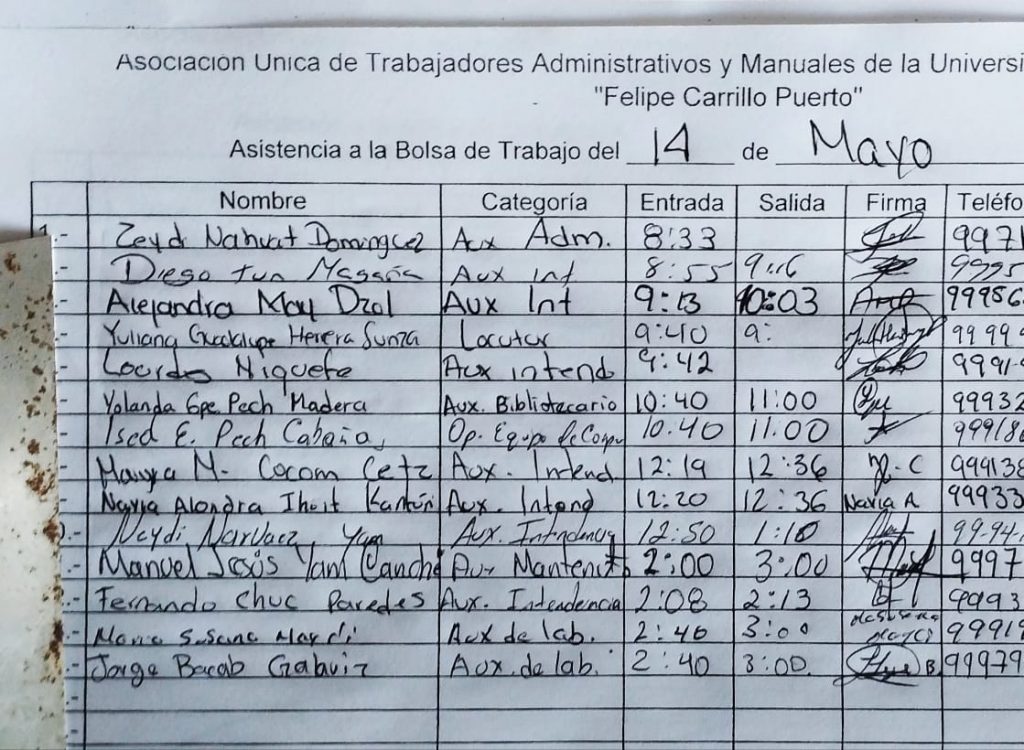 Asociación Única de Trabajadores Administrativos y Manuales de la Universi
"Felipe Carrillo Puerto"
Asistencia a la Bolsa de Trabajo del 14 de Mayo
Nombre Categoría Entrada Salida Firma Teléfo
1.- Zeydi Nahuat Dominguez Aux Adm. 8:33 9971
.- Diego tun Magaña Aux int 8:55 9:16 9995
.- Alejandra May Dzul Aux Int 9:13 10:03 99986
.- Yuliana Guadalupe Herrera Sunza Locutor 9:40 9: 99999
.- Lourdes Niquete Aux intend 9:42 9991
.- Yolanda Gpe Pech Madera Aux. Bibliotacario 10:40 11:00 99932
.- Ised E. Pech Cabaña, Op. Equipo de Compu 10:40 11:00 999186
.- M. Cocom Cetz Aux. Intend. 12:19 12:36 999138
.- Alondra Aux. Intend 12:20 12:36 A 99933
.- Neydi Narvaez Yam Aux. Intendencia 12:50 1:10 9994
.- Manuel Jesús Yam Canché Aux 2:00 3:00 9997
.- Fernando Chuc Paredes Aux. Intendencia 2:08 2:13 9993
.- Aux de lab. 2:40 3:00 99919
.- Jorge Bacab Aux. de lab. 2:40 3:00. B. 99979
.-
.-